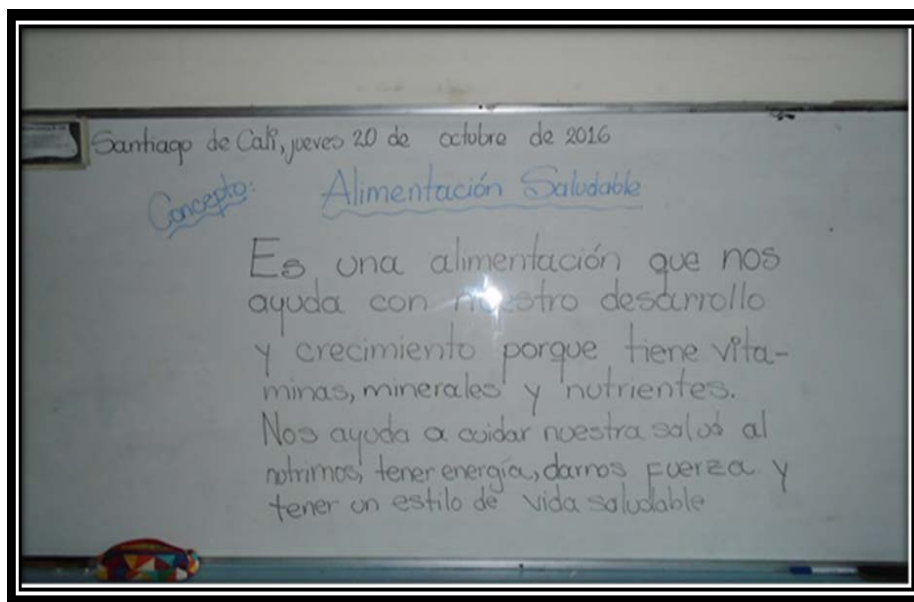 Santiago de Cali, jueves 20 de octubre de 2016
Concepto: Alimentación Saludable
Es una alimentación que nos
ayuda con nuestro desarrollo
y crecimiento porque tiene vita-
minas, minerales y nutrientes.
Nos ayuda a cuidar nuestra salud al
nutrirnos, tener energía, darnos fuerza y
tener un estilo de vida saludable